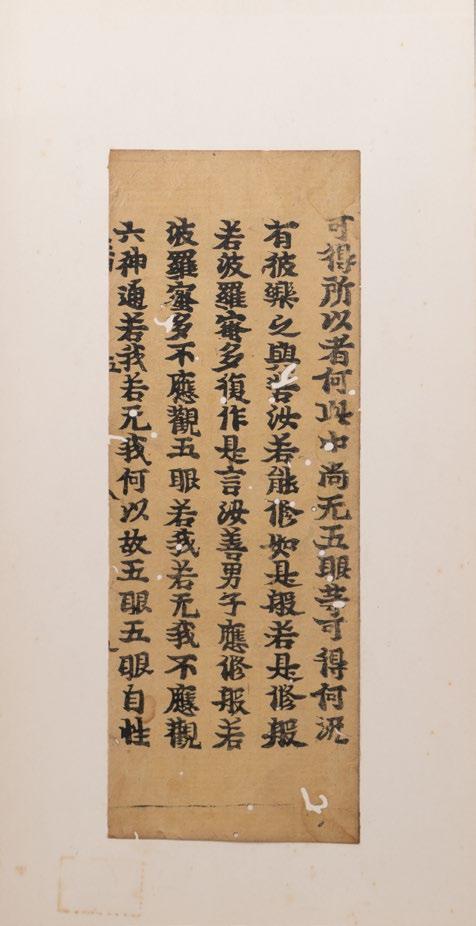 可得所以者何此中尚无五眼等可得何況
有彼樂之與苦汝若能修如是般若是修般
若波羅蜜多復作是言汝善男子應修般若
波羅蜜多不應觀五眼若我若无我不應觀
六神通若我若无我何以故五眼五眼自性